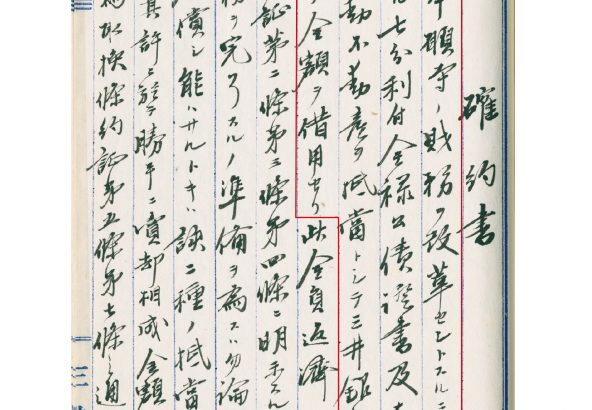 確約書
本願寺ノ財務ヲ改革セントスルニ
七分利付金禄公債證書及
動不動產ヲ抵當トシテ三井銀
金額ヲ借用セリ此金員返濟
証第二條第三條第四條ニ明示スル
務ヲ完了スルノ準備ヲ為スハ勿論
償シ能ハサルトキハ該二種ノ抵當
其許ニ於テ勝手ニ賣却相成金額
取換條約証第五條第七條ノ通
三